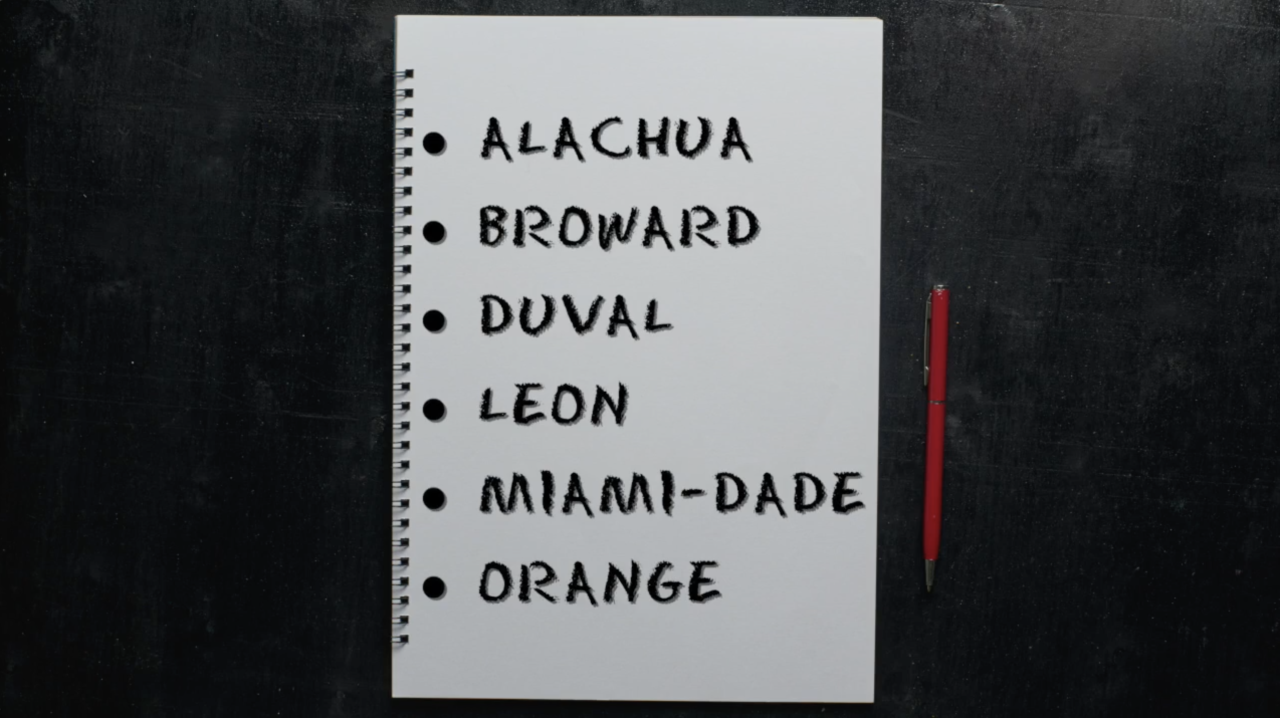 • ALACHUA
• BROWARD
• DUVAL
• LEON
• MIAMI-DADE
• ORANGE